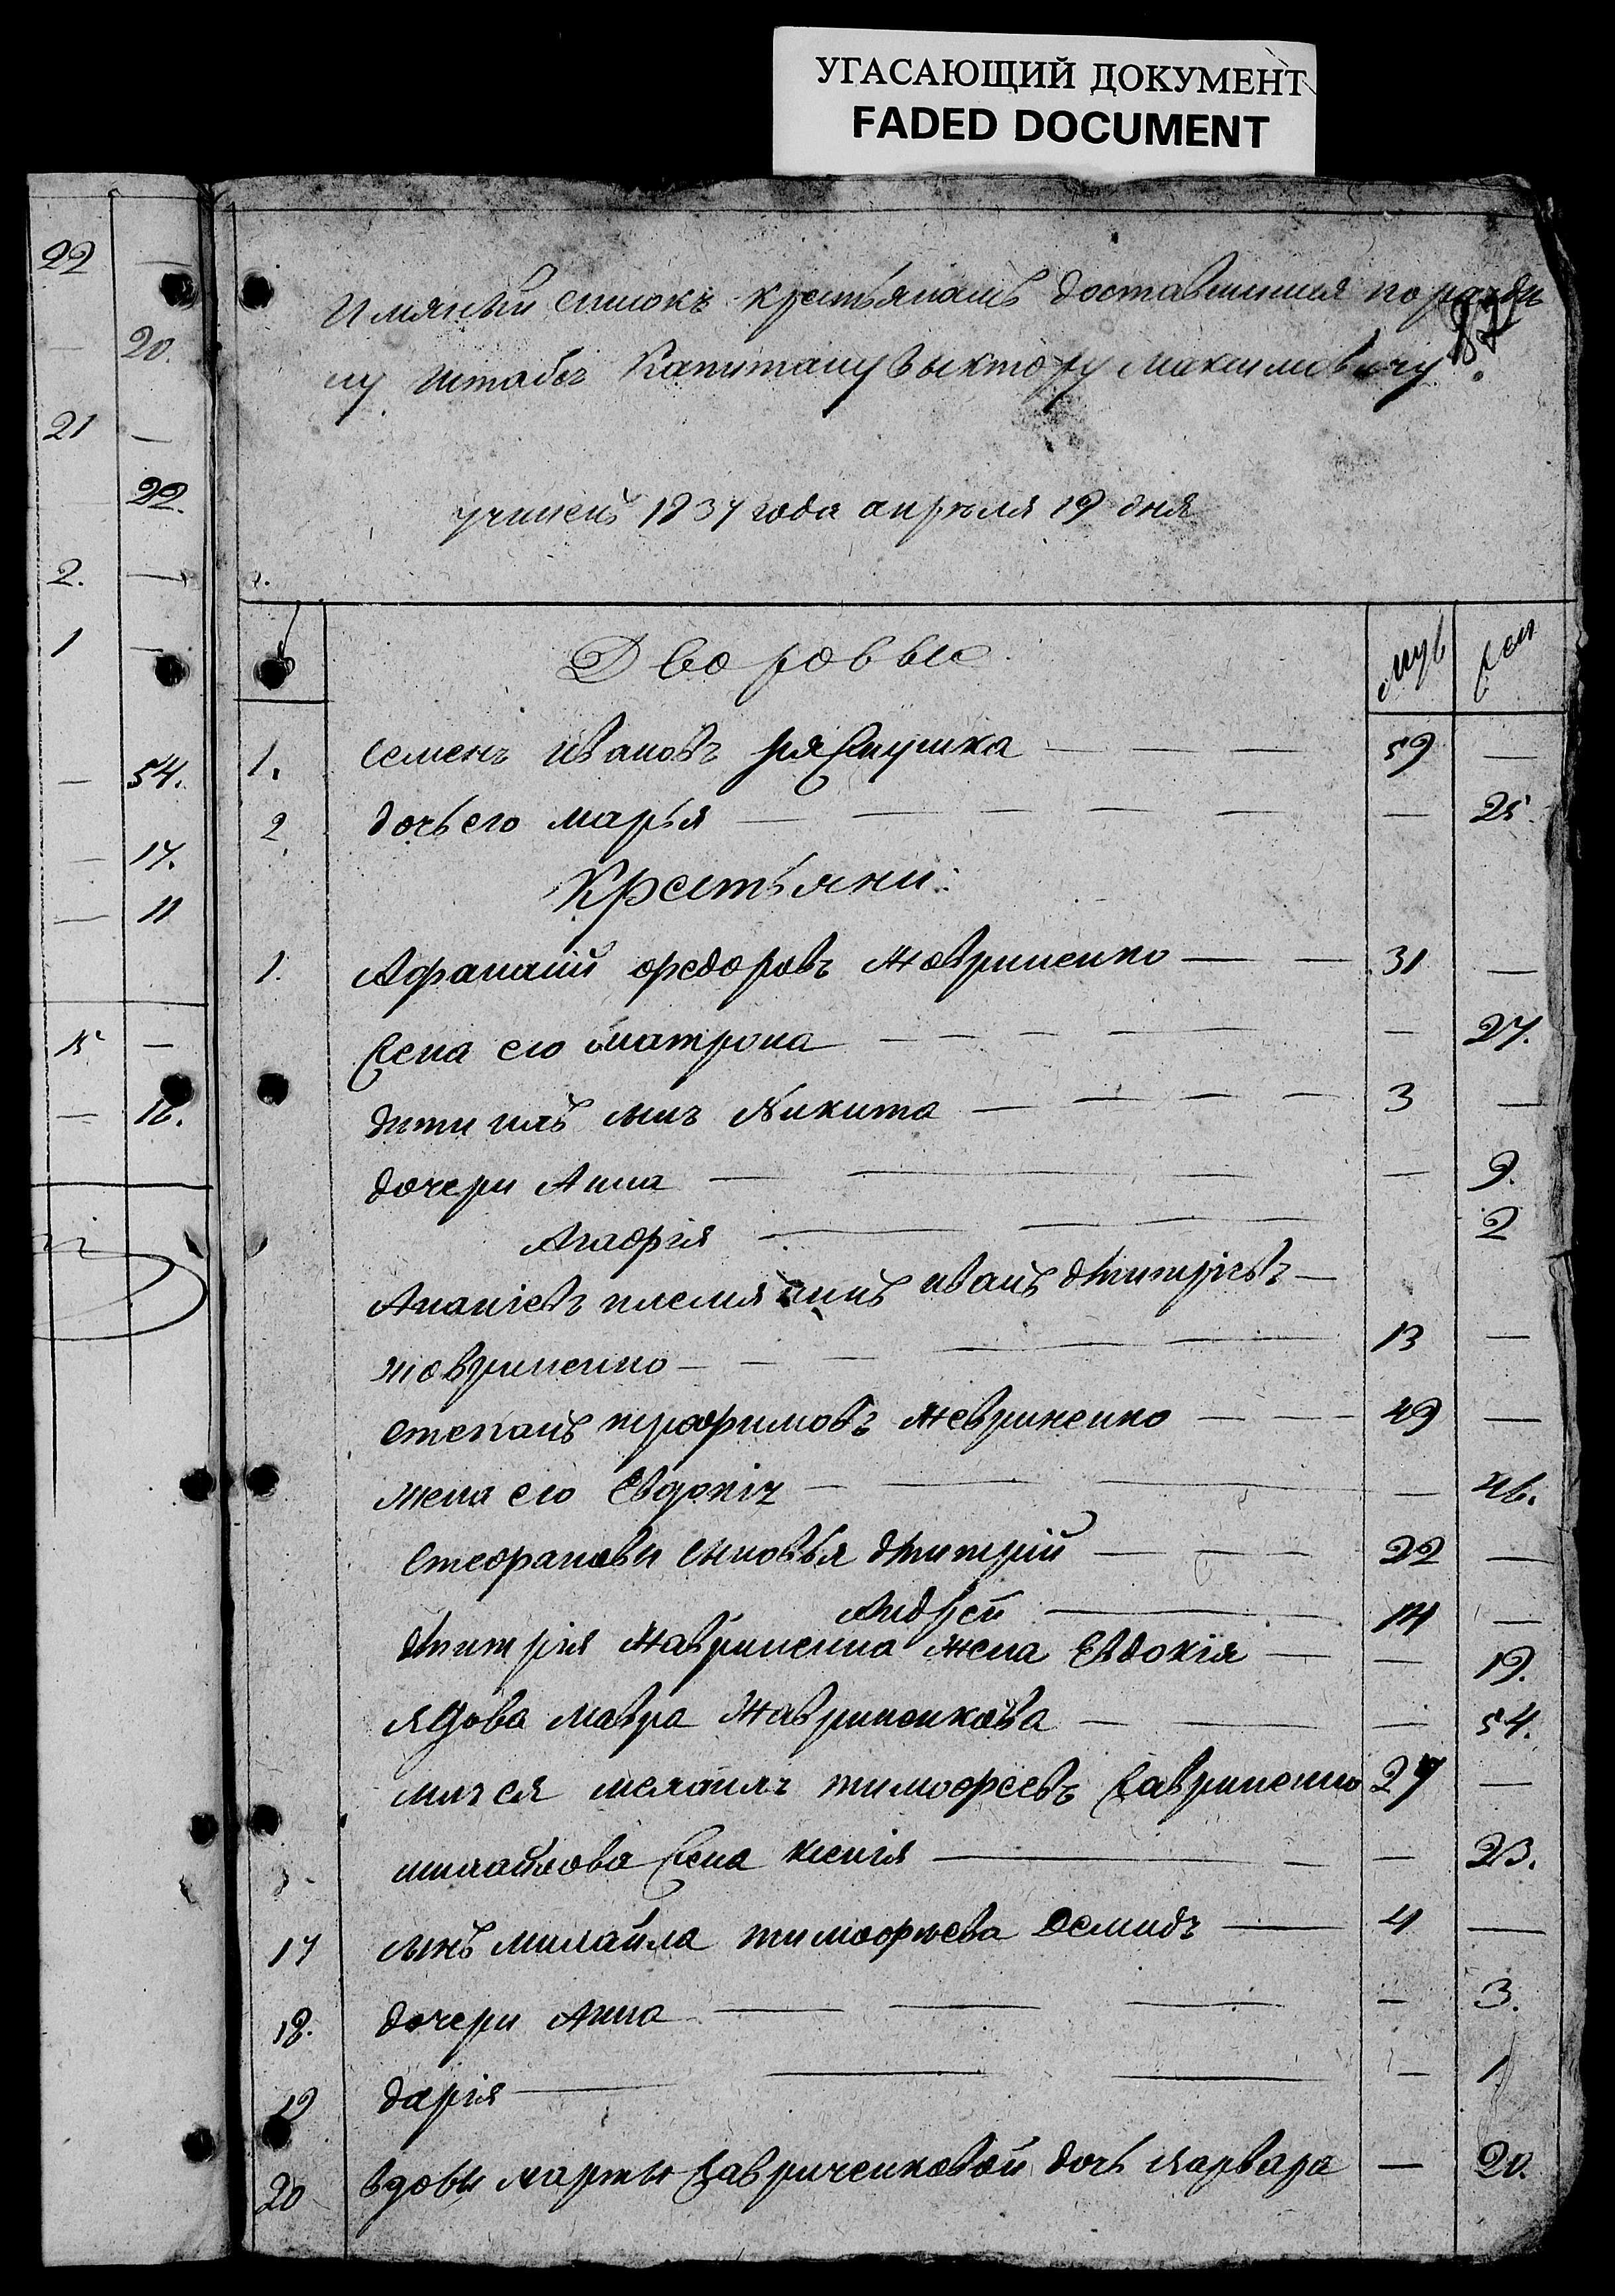 УГАСАЮЩИЙ ДОКУМЕНТ
FADED DOCUMENT
22 —
— 20.
21 —
22.
2. —
1 —
— 54.
— 17.
— 11
15 —
— 16.
87
Имяный списокъ крестьянамъ доставшимся по раздѣ
лу Штабсъ Капитану Выктору Максимовичу
учиненъ 1837 года апрѣля 19 дня
Дворовые муж жен
1. Семенъ Ивановъ 59 —
2. дочь его марья — — 25.
Крестьяни:
1. Афанасий федоровъ Жавриненко — 31 —
Жена его матрона — — 27.
дити ихъ сынъ Никита — 3 —
дочери Анна — — 9.
Агафія — 2
племянникъ иванъ дмитріевъ —
жавриненко — 13 —
степанъ трофимовъ жавриненко — 49 —
жена его Евдокія — — 46.
Стефановы сыновья дмитрій — 22 —
Андрей — 14 —
дмитрія жавриненка жена Евдокія — — 19.
вдова мавра жавриненкова — — 54.
тимофеевъ жавриненко 27 —
михайлова жена ксенія — — 23.
17 сынъ михайла тимофѣева Демидъ — 4 —
18. дочери Анна — — 3.
19 дарія — — 1
20 вдовы марты жавриченковой дочь варвара — 20.